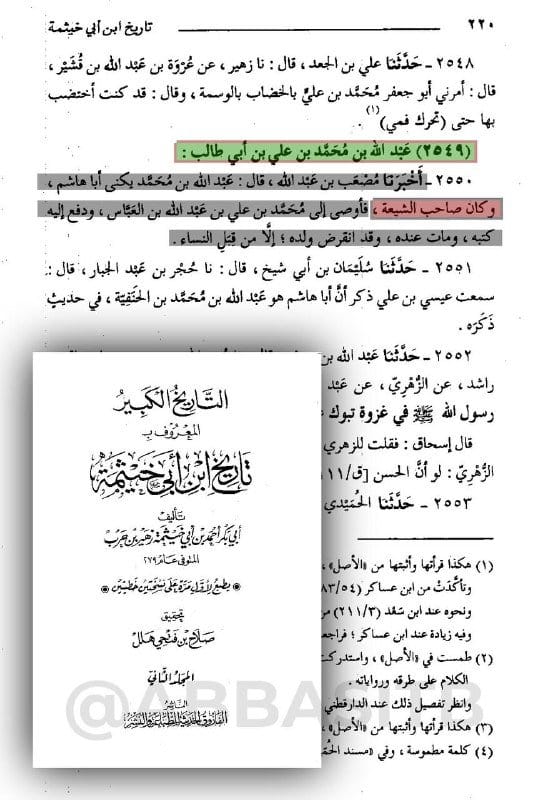 ٢٢٠
تاريخ ابن أبي خيثمة
٢٥٤٨ - حَدَّثَنَا علي بن الجعد ، قال : نا زهير ، عن عُرْوَة بن عَبْد الله بن قُشَيْر ،
قال : أمرني أبو جعفر مُحَمَّد بن عليٍّ بالخضاب بالوسمة ، وقال : قد كنت أختضب
بها حتى (تحرك فمي) (١) .
(٢٥٤٩) عَبْد الله بن مُحَمَّد بن علي بن أبي طالب :
٢٥٥٠ - أَخْبَرَنَا مُصْعَب بن عَبْد الله ، قال : عَبْد الله بن مُحَمَّد يكنى أبا هاشم ،
وكان صاحب الشيعة ، فأوصى إلى مُحَمَّد بن علي بن عَبْد الله بن العَبَّاس ، ودفع إليه
كتبه ، ومات عنده ، وقد انقرض ولده ؛ إلَّا من قِبَلِ النساء .
٢٥٥١ - حَدَّثَنَا سُلَيْمَان بن أبي شيخ ، قال : نا حُجْر بن عَبْد الجبار ، قال :
سمعت عيسى بن علي ذكر أنَّ أبا هاشم هو عَبْد الله بن مُحَمَّد بن الحَنَفِيَّة ، في حديثٍ
ذَكَرَه .
٢٥٥٢ - حَدَّثَنَا عَبْد الله بن
راشد ، عن الزُّهْرِيّ ، عن عَبْد
رسول الله ﷺ في غزوة تبوك
قال إسحاق : فقلت للزهري
الزُّهْرِيّ : لو أنَّ الحسن [ق/١١١
٢٥٥٣ - حَدَّثَنَا الحُمَيْدي
(١) هكذا قرأتها وأثبتها من «الأصل» ،
وتأكَّدْتُ من ابن عساكر (٨٣/٥٤)
ونحوه عند ابن سَعْد (٢١١/٣) من
وفيه زيادة عند ابن عساكر ؛ فراجعه
(٢) طمست في «الأصل» ، واستدركت
الكلام على طرقه ورواياته .
وانظر تفصيل ذلك عند الدارقطني
(٣) هكذا قرأتها وأثبتها من «الأصل» ،
(٤) كلمة مطموسة ، وفي «مسند الحُمَ
التَّاريخ الكَبيرُ
المَعْرُوف بـ
تاريخ ابن أبي خيثمة
تأليف
أبي بكر أحمد بن أبي خيثمة زهير بن حرب
المتوفى عام ٢٧٩
يطبع لأول مرة على نسختين خطيتين
تحقيق
صلاح بن فتحي هلل
المجلد الثاني
الناشر
الفاروق الحديثة للطباعة والنشر
@ABBASITB